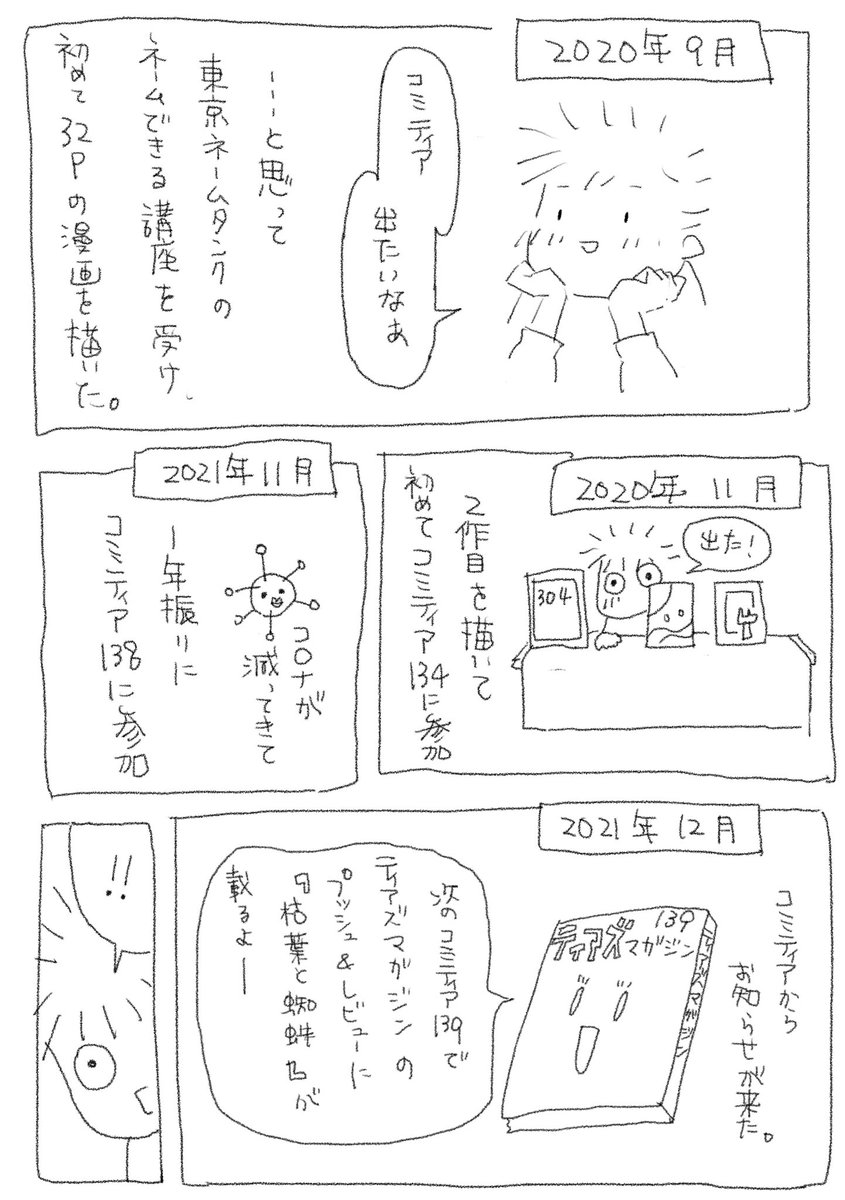 2020年9月
コミティア
出たいなぁ
…と思って
東京ネームタンクの
ネームできる講座を受け、
初めて32Pの漫画を描いた。
2020年11月
出た!
304
2作目を描いて
初めてコミティア134に参加
2021年11月
コロナが
減ってきて
一年振りに
コミティア138に参加
2021年12月
コミティアから
お知らせが来た。
139
ティアズマガジン
ティアズマガジン
次のコミティア139で
ティアズマガジンの
プッシュ&レビューに
『枯葉と蜘蛛』が
載るよー
!!